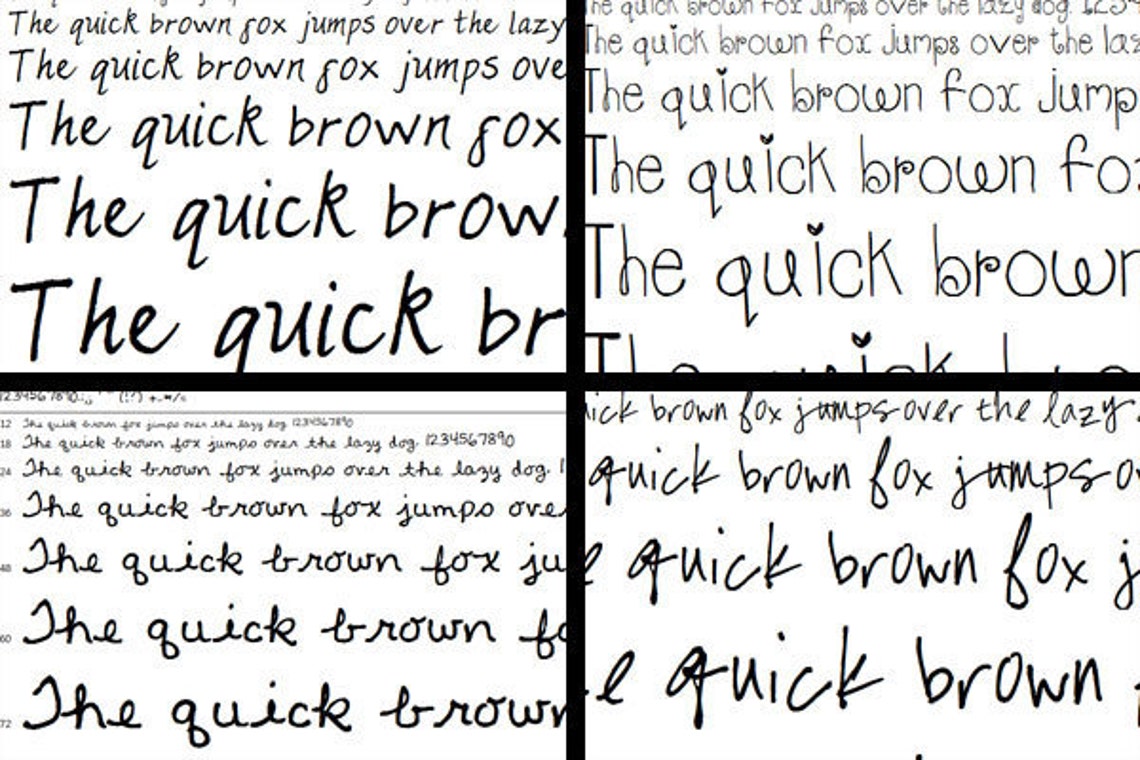 The quick brown fox jumps over the lazy
The quick brown fox jumps ove
The quick brown fox
The quick brow
The quick br
The quick brown fox jumps over the lazy dog. 123
The quick brown fox jumps over the las
The quick brown fox jump
The quick brown fo
The quick brown
The quick bro
1234567890.:,; ' " (!?) +-*/=
12 The quick brown fox jumps over the lazy dog. 1234567890
18 The quick brown fox jumps over the lazy dog. 1234567890
24 The quick brown fox jumps over the lazy dog. 1
36 The quick brown fox jumps over
48 The quick brown fox ju
60 The quick brown fo
72 The quick brown
uick brown fox jumps over the lazy
quick brown fox jumps ov
e quick brown fox j
e quick brown